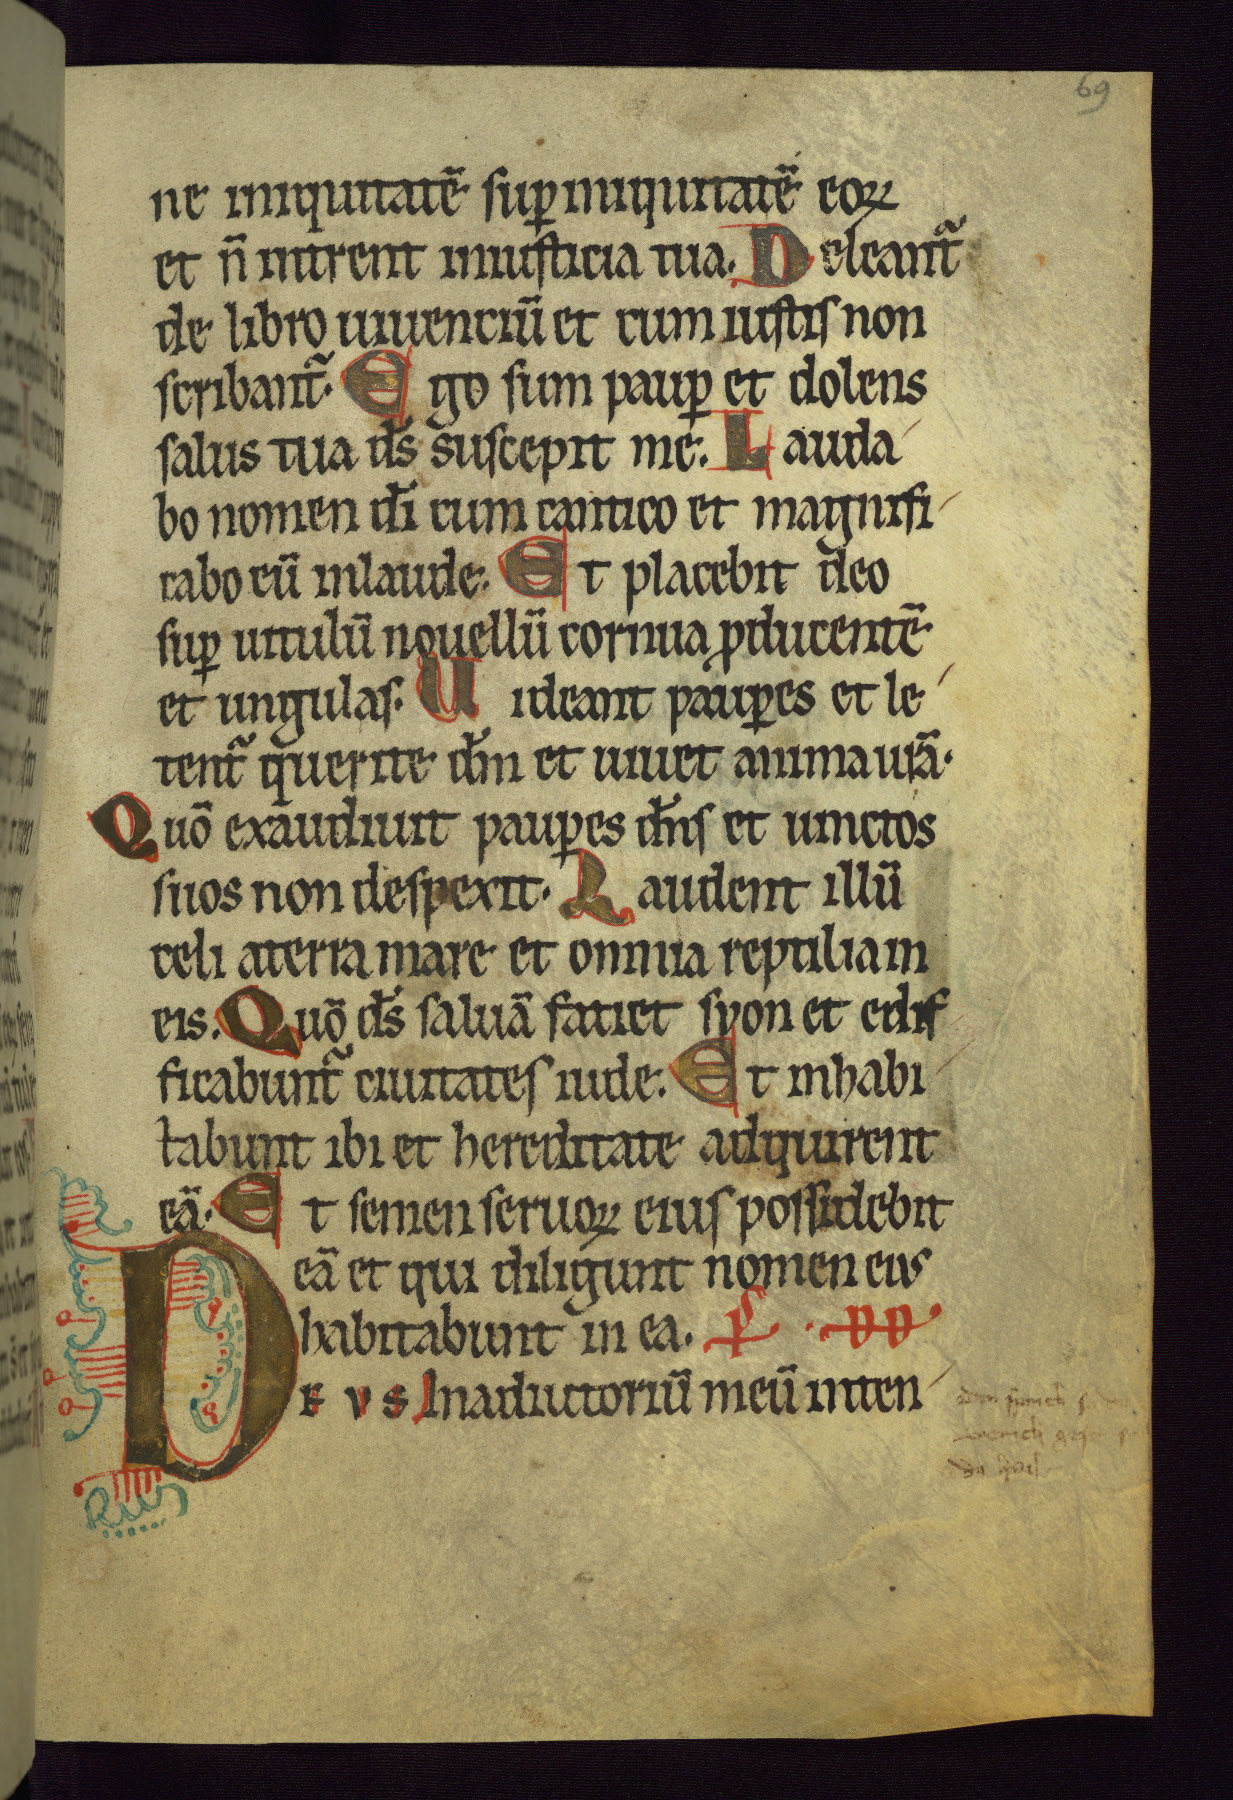 69
ne iniquitatē sup̄ iniquitatē eoꝝ
et n̄ intrent iniusticia tua. Deleant᷑
de libro uiuenciū et cum iustis non
scribant᷑. Ego sum paup̄ et dolens
salus tua ds̄ suscepit me. Lauda
bo nomen dī cum cantico et magnifi
cabo eū inlaude. Et placebit deo
sup̄ uitulū nouellū cornua ꝓducentē
et ungulas. Uideant paup̄es et le
tent᷑ querite dm̄ et uiuet anima ur̄a.
Quō exaudiuit paup̄es dn̄s et uinctos
suos non despexit. Laudent illū
celi aterra mare et omnia reptilia in
eis. Quō ds̄ saluā faciet syon et edif
ficabunt᷑ ciuitates iude. Et inhabi
tabunt ibi et hereditate adquirent
eā. Et semen seruoꝝ eius possidebit
eā et qui diligunt nomen eius
habitabunt in ea.
DEVS Inadiutoriū meū inten